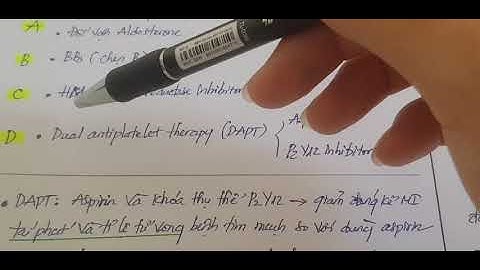 A • Đối với Aldosterone
B • BBs (chẹn
C • Inhibitor
D • Dual antiplatelet therapy (DAPT)
P2Y12 Inhibitor
• DAPT: Aspirin và khóa thụ thể P2Y12 → giảm đáng kể MI
tái phát và tỉ lệ tử vong bệnh tim mạch so với dùng aspirin